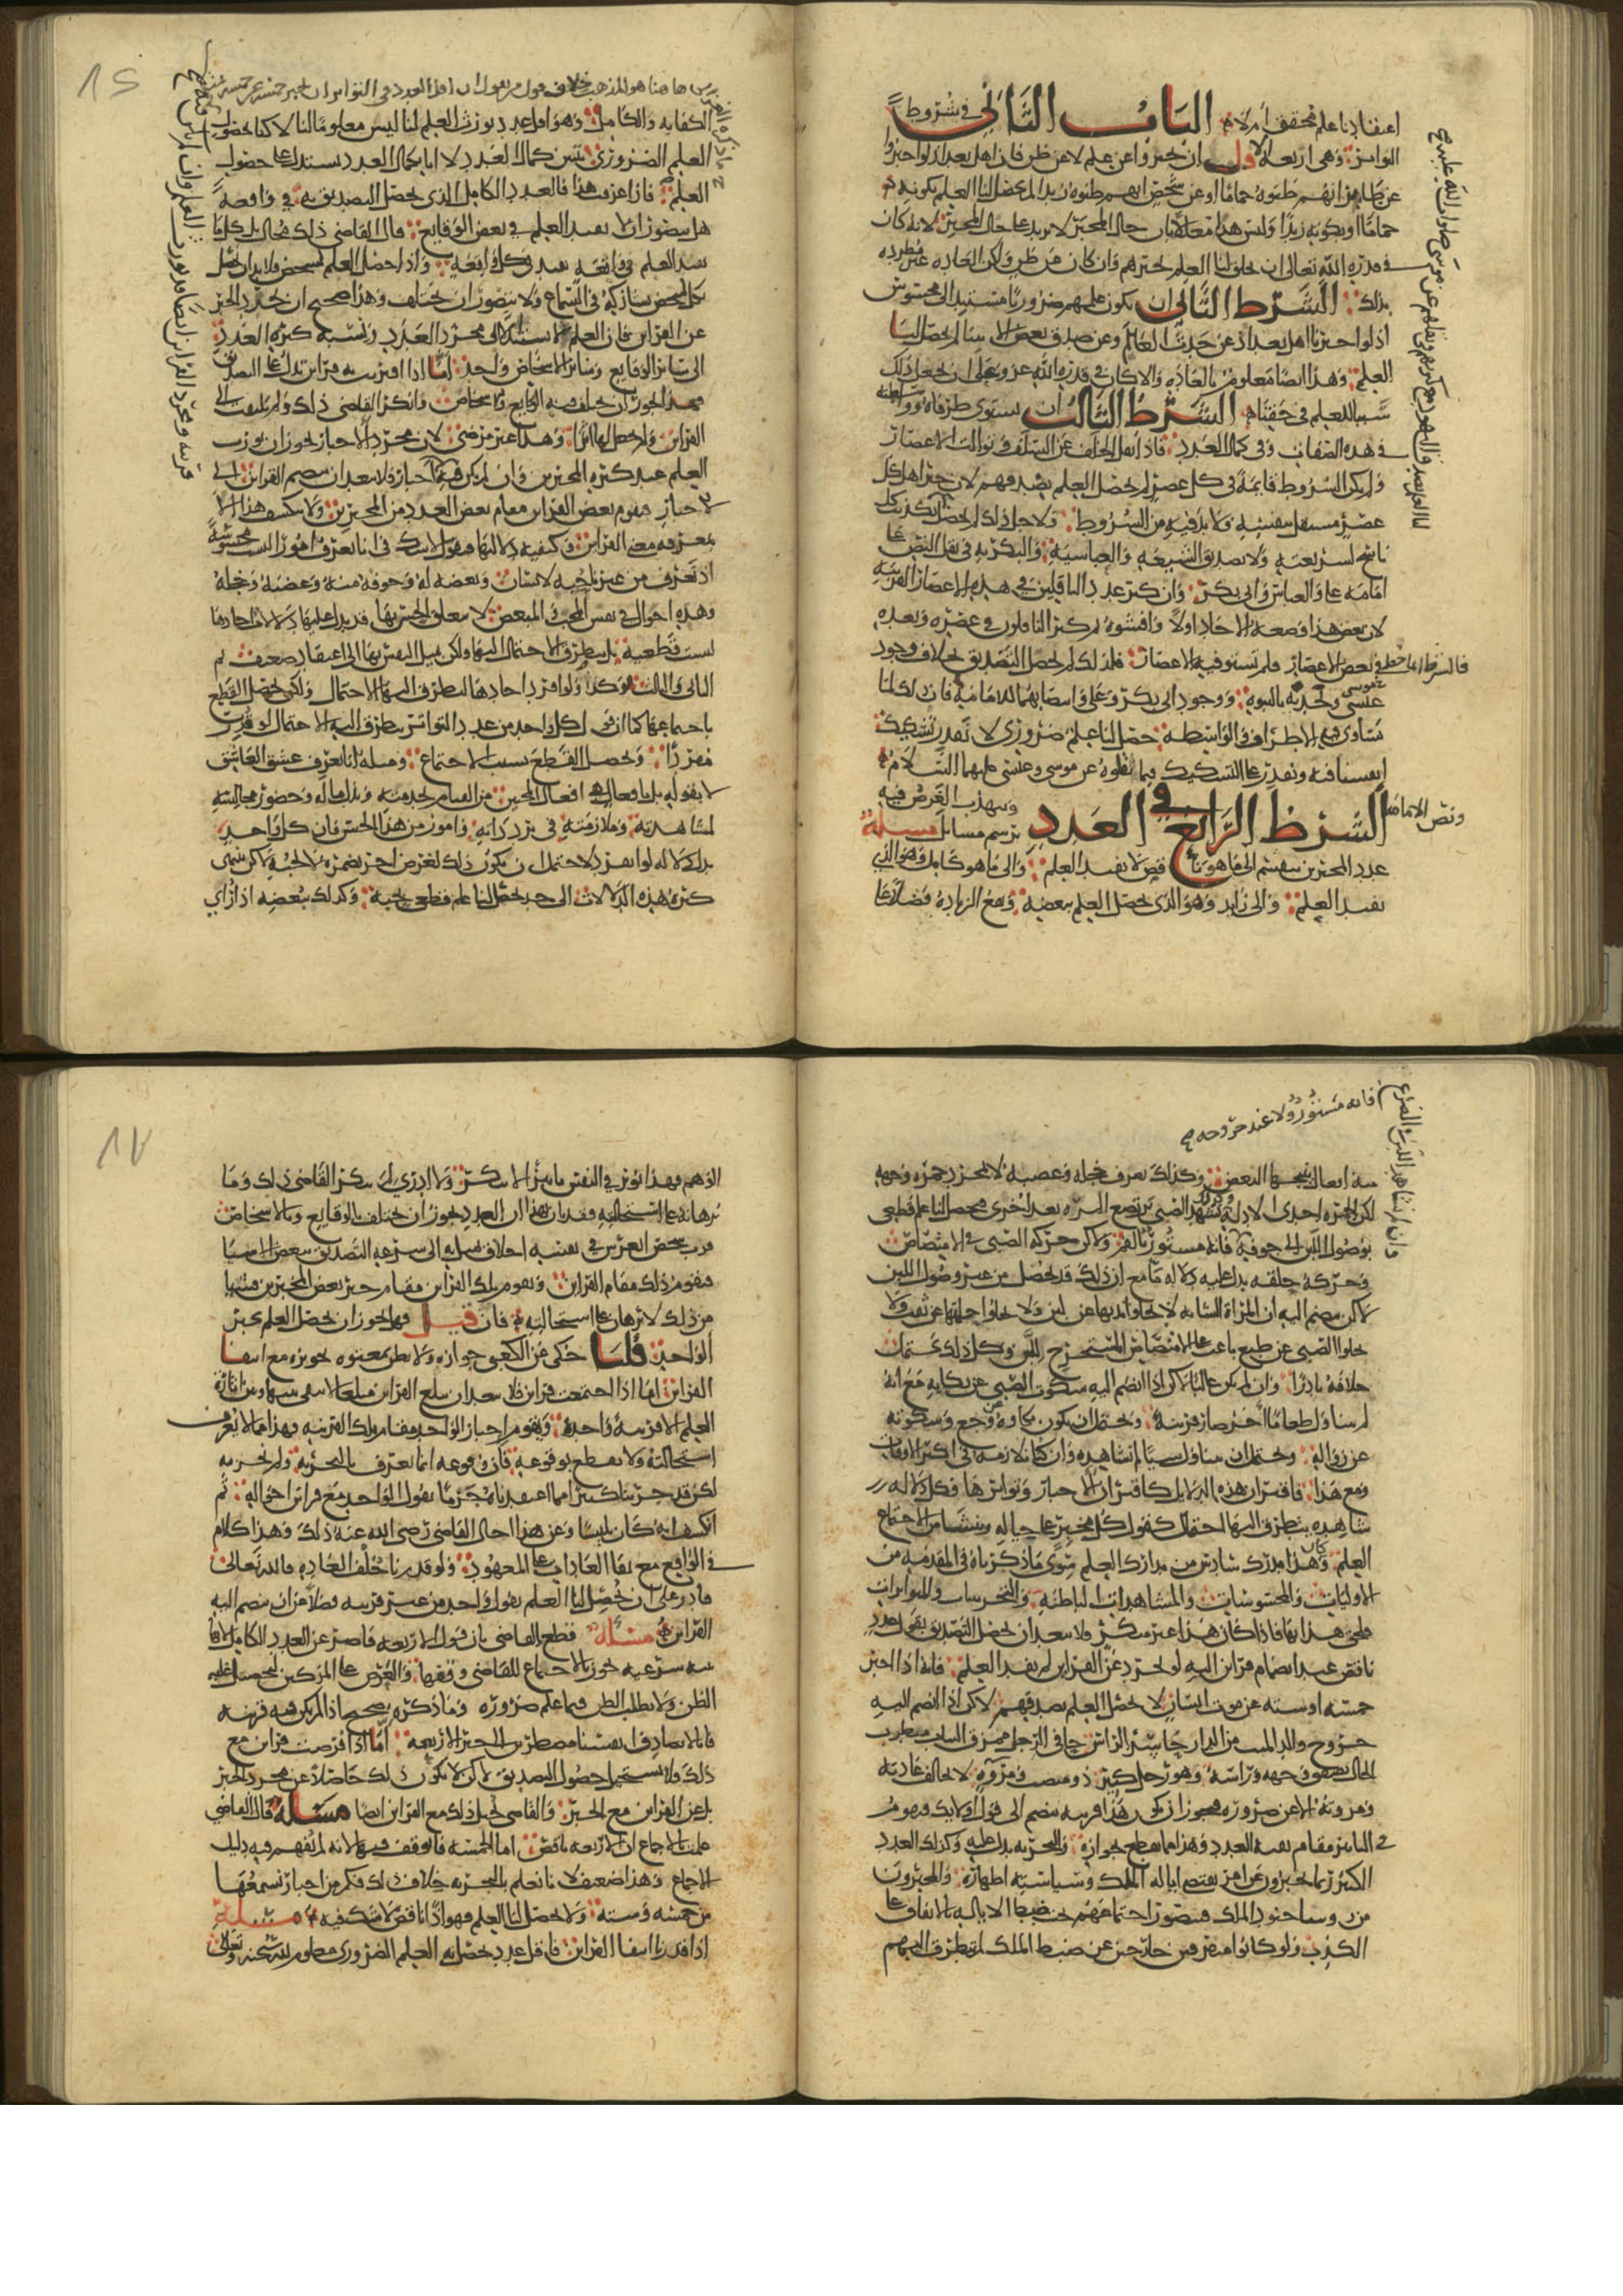 اعتقادنا علم محقق ام لا الباب الثاني في شروط
التواتر وهي اربعة الاول ان يخبروا عن علم لا عن ظن فان اهل بغداد لو اخبروا
عن طاير انهم ظنوه حماما او عن شخص انهم ظنوه زيدا لم يحصل لنا العلم بكونه
حماما او بكونه زيدا وليس هذا معللا بان حال المخبر لا يزيد على حال المخبر لانه كان
في قدرة الله تعالى ان يخلق لنا العلم بخبرهم وان كان عن ظن ولكن العادة غير مطردة
بذلك الشرط الثاني ان يكون علمهم ضروريا مستندا الى محسوس
اذ لو اخبرنا اهل بغداد عن حدث العالم وعن صدق بعض الانبياء لم يحصل لنا
العلم وهذا ايضا معلوم بالعادة والا كان في قدرة الله عز وجل ان يجعل ذلك
سببا للعلم في حقنا الشرط الثالث ان يستوي طرفاه وواسطته
في هذه الصفات وفي كمال العدد فاذا نقل الخلف عن السلف وتوالت الاعصار
ولم يكن الشروط قائمة في كل عصر لم يحصل العلم بصدقهم لان خبر اهل كل
عصر مستقل بنفسه ولا بد فيه من الشروط ولاجل ذلك لم يحصل
ولا بصدق الشيعة والعباسية والبكرية في نقل النص على
امامة علي والعباس وابي بكر وان كثر عدد الناقلين في هذه الاعصار القريبة
لان بعض هذا وضعه الاحاد اولا وافشوه ثم كثر الناقلون في عصره وبعده
فالشرط انما حصل في بعض الاعصار فلم تستو فيه الاعصار فلذلك لم يحصل التصديق بخلاف وجود
عيسى وتحديه بالنبوة ووجود ابي بكر وعلي وانتصابهما للامامة فان ذلك لما
تساوى فيه الاطراف والواسطة حصل لنا علم ضروري لا نقدر تشكيك
انفسنا فيه ونقدر على التشكيك فيما نقلوه عن موسى وعيسى عليهما السلام
ونص الامامة الشرط الرابع في العدد ويتهذب الغرض فيه
برسم مسايل مسلة
عدد المخبرين ينقسم الى ما هو ناقص لا يفيد العلم والى ما هو كامل وهو الذي
يفيد العلم والى زايد وهو الذي يحصل العلم ببعضه وتقع الزيادة فضلا عن
١٦
الكفاية والكامل وهو اقل عدد يورث العلم لنا ليس معلوما لنا لاكنا بحصول
العلم الضروري نتبين كمال العدد لا انا بكمال العدد نستدل على حصول
العلم فاذا عرفت هذا فالعدد الكامل الذي يحصل التصديق به في واقعة
هل يتصور ان لا يفيد العلم في بعض الوقايع قال القاضي ذلك محال بل كل ما
يفيد العلم في واقعة يفيد في كل واقعة واذا حصل العلم لشخص فلا بد ان يحصل
لكل شخص يشاركه في السماع ولا يتصور ان يختلف وهذا صحيح ان تجرد الخبر
عن القراين فان العلم لا يستند الى مجرد العدد ونسبة كثرة العدد
الى ساير الوقايع وساير الاشخاص واحد اما اذا اقترنت به قراين تدل على التصديق
فهذا يجوز ان يختلف فيه الوقايع والاشخاص وانكر القاضي ذلك ولم يلتفت الى
القراين ولم يجعل لها اثرا وهذا غير مرضي لان مجرد الاخبار يجوز ان يورث
العلم عند كثرة المخبرين وان لم يكن قرينة
الاخبار فيقوم بعض القراين مقام بعض العدد من المخبرين ولا ينكشف هذا الا
بمعرفة معنى القراين وكيفية دلالتها فنقول لا شك في انا نعرف امورا ليست محسوسة
اذ نعرف من غيرنا حبه لانسان وبغضه له وخوفه منه وغضبه وخجله
وهذه احوال في نفس المحب والمبغض لا يتعلق الحس بها قد يدل عليها دلالات احادها
ليست قطعية بل يتطرق الاحتمال اليها ولكن يميل النفس بها الى اعتقاد ضعيف ثم
الثاني والثالث يؤكد ولو افردت احادها لتطرق اليها الاحتمال ولكن يحصل القطع
باجتماعها كما ان قول كل واحد من عدد التواتر يتطرق اليه الاحتمال لو قدر
مفردا ويحصل القطع بسبب الاجتماع ومثاله انا نعرف عشق العاشق
لا بقوله بل بافعال هي افعال المحبين من القيام بخدمته وبذل ماله وحضور مجالسه
لمشاهدته وملازمته في تردداته وامور من هذا الجنس فان كل واحد
يدل دلالة لو انفرد لاحتمل ان يكون ذلك لغرض اخر يضمره لا لحبه لاكن تنتهي
كثرة هذه الدلالات الى حد يحصل لنا علم قطعي بحبه وكذلك ببغضه اذا راى
فانه مستور ولا عند خروجه
منه افعال ينتجها البغض وكذلك نعرف خجله وغضبه لا بمجرد حمرة وجهه
لكن الحمرة احدى الادلة وكذلك نشهد الصبي يرتضع المرة بعد اخرى فيحصل لنا علم قطعي
بوصول اللبن الى جوفه فانه مستور بالفم ولاكن حركة الصبي في الامتصاص
وحركة حلقه يدل عليه دلالة ما مع ان ذلك قد يحصل من غير وصول اللبن
لاكن ينضم اليه ان المراة الشابة لا يخلو ثديها عن لبن ولا يخلو حلمتها عن ثقب ولا
يخلو الصبي عن طبع باعث على الامتصاص المستخرج للبن وكل ذلك يحتمل
خلافه نادرا وان لم يكن غالبا لاكن اذا انضم اليه سكوت الصبي عن بكايه مع انه
لم يتناول طعاما اخر صار قرينة ويحتمل ان يكون بكاؤه عن وجع وسكوته
عن زواله ويحتمل ان يتناول شيا لم نشاهده وان كنا نلازمه في اكثر الاوقات
ومع هذا فاقتران هذه الدلايل كاقتران الاخبار وتواترها وكل دلالة
شاهده يتطرق اليها احتمال كقول كل مخبر على حياله وينشا من الاجتماع
العلم وكان هذا مدرك سادس من مدارك العلم سوى ما ذكرناه في المقدمة من
الاوليات والمحسوسات والمشاهدات الباطنة والتجريبيات والمتواترات
فيلحق هذا بها فاذا كان هذا غير منكر فلا يبعد ان يحصل التصديق بقول عدد
ناقص عند انضمام قراين اليه لو تجرد عن القراين لم يفد العلم فانه اذا اخبر
خمسة او ستة عن موت انسان لا يحصل العلم بصدقهم لاكن اذا انضم اليه
خروج والد الميت من الدار حاسر الراس حافي الرجل ممزق الثياب مضطرب
الحال يصفق وجهه وراسه وهو رجل كبير ذو منصب ومروة لا يخالف عادته
ومروته الا عن ضرورة فيجوز ان يكون هذا قرينة ينضم الى قول اولئك فيقوم
في التاثير مقام بقية العدد وهذا مما يقطع بجوازه والتجربة يدل عليه وكذلك العدد
الكثير ربما يخبرون عن امر يقتضي ايالة الملك وسياسته اظهاره والمخبرون
من روسا جنود الملك فيتصور اجتماعهم تحت ضبط الايالة بالاتفاق على
الكذب ولو كانوا متفرقين خارجين عن ضبط الملك لم يتطرق اليهم
١٧
الوهم فهذا يؤثر في النفس تاثيرا لا ينكر ولا ادري لم ينكر القاضي ذلك وما
برهانه على استحالته وقد بان بهذا ان العدد يجوز ان يختلف بالوقايع وبالاشخاص
فرب شخص انغرس في نفسه اخلاق يميل به الى سرعة التصديق ببعض الاشيا
فيقوم ذلك مقام القراين وتقوم تلك القراين مقام خبر بعض المخبرين فينشا
من ذلك لا برهان على استحالته فان قيل فهل يجوز ان يحصل العلم بخبر
الواحد قلنا حكي عن الكعبي جوازه ولا يظن بمعتوه تجويزه مع انتفا
القراين اما اذا اجتمعت قراين فلا يبعد ان تبلغ القراين مبلغا لا يبقى بينها وبين اثارة
العلم الا قرينة واحدة ويقوم اخبار الواحد مقام تلك القرينة وهذا مما لا يعرف
استحالته ولا نقطع بوقوعه فان وقوعه انما يعرف بالتجربة ولم نجربه
لكن قد جربنا كثيرا مما اعتقدناه جزما بقول الواحد مع قراين احواله ثم
انكشف انه كان تلبيسا وعن هذا احال القاضي رضي الله عنه ذلك وهذا كلام
في الواقع مع بقا العادات على المعهود ولو قدرنا خلف العادة فالله تعالى
قادر على ان يحصل لنا العلم بقول واحد من غير قرينة فضلا عن ان ينضم اليه
القراين مسلة قطع القاضي بان قول الاربعة قاصر عن العدد الكامل لانها
بينة شرعية يجوز بالاجماع للقاضي وقفها والعرض على المزكين ليحصل غلبة
الظن ولا يطلب الظن فيما علم ضرورة وما ذكره صحيح اذا لم يكن فيه قرينة
فانا لا نصادف انفسنا مضطرين الى خبر الاربعة اما اذا فرضت قراين مع
ذلك فلا يستحيل حصول التصديق لاكن لا يكون ذلك حاصلا عن مجرد الخبر
بل عن القراين مع الخبر والقاضي يحيل ذلك مع القراين ايضا مسلة قال القاضي
علمت بالاجماع ان الاربعة ناقص اما الخمسة فاتوقف فيها لانه لم يقم فيه دليل
الاجماع وهذا ضعيف لانا نعلم بالتجربة خلاف ذلك فكم من اخبار نسمعها
من خمسة وستة ولا يحصل لنا العلم فهو ايضا ناقص لا نشك فيه مسلة
اذا قدرنا انتفا القراين فاقل عدد يحصل به العلم الضروري معلوم لله سبحنه وتعالى